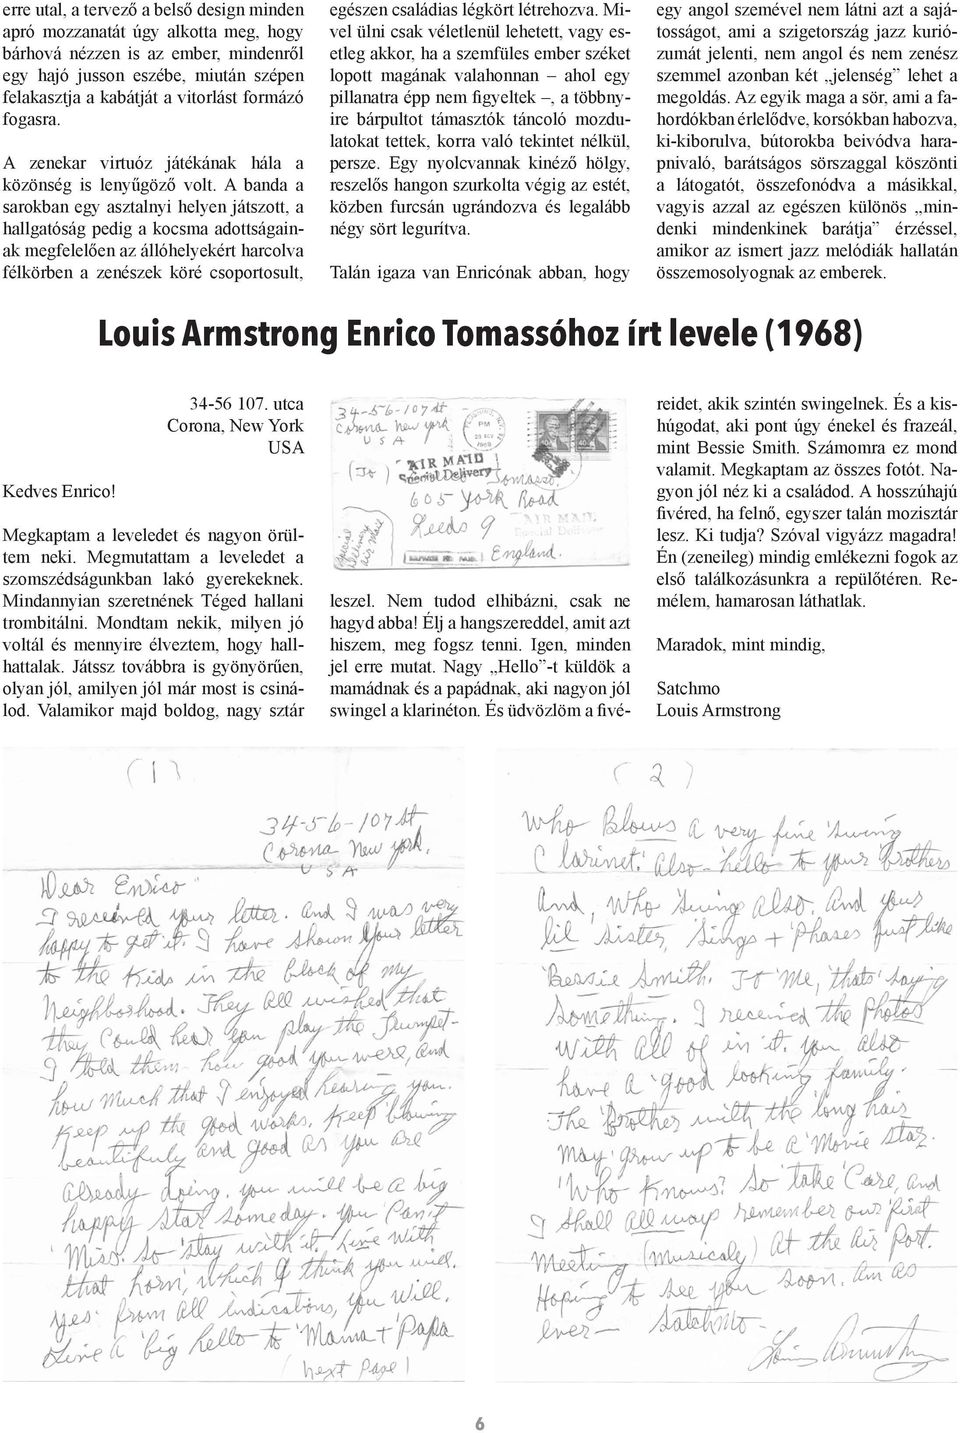 erre utal, a tervező a belső design minden
apró mozzanatát úgy alkotta meg, hogy
bárhová nézzen is az ember, mindenről
egy hajó jusson eszébe, miután szépen
felakasztja a kabátját a vitorlást formázó
fogasra.
A zenekar virtuóz játékának hála a
közönség is lenyűgöző volt. A banda a
sarokban egy asztalnyi helyen játszott, a
hallgatóság pedig a kocsma adottságain-
ak megfelelően az állóhelyekért harcolva
félkörben a zenészek köré csoportosult,
egészen családias légkört létrehozva. Mi-
vel ülni csak véletlenül lehetett, vagy es-
etleg akkor, ha a szemfüles ember széket
lopott magának valahonnan – ahol egy
pillanatra épp nem figyeltek –, a többny-
ire bárpultot támasztók táncoló mozdu-
latokat tettek, korra való tekintet nélkül,
persze. Egy nyolcvannak kinéző hölgy,
reszelős hangon szurkolta végig az estét,
közben furcsán ugrándozva és legalább
négy sört legurítva.
Talán igaza van Enricónak abban, hogy
egy angol szemével nem látni azt a sajá-
tosságot, ami a szigetország jazz kurió-
zumát jelenti, nem angol és nem zenész
szemmel azonban két „jelenség” lehet a
megoldás. Az egyik maga a sör, ami a fa-
hordókban érlelődve, korsókban habozva,
ki-kiborulva, bútorokba beivódva hara-
pnivaló, barátságos sörszaggal köszönti
a látogatót, összefonódva a másikkal,
vagyis azzal az egészen különös „min-
denki mindenkinek barátja” érzéssel,
amikor az ismert jazz melódiák hallatán
összemosolyognak az emberek.
Louis Armstrong Enrico Tomassóhoz írt levele (1968)
34-56 107. utca
Corona, New York
USA
Kedves Enrico!
Megkaptam a leveledet és nagyon örül-
tem neki. Megmutattam a leveledet a
szomszédságunkban lakó gyerekeknek.
Mindannyian szeretnének Téged hallani
trombitálni. Mondtam nekik, milyen jó
voltál és mennyire élveztem, hogy hall-
hattalak. Játssz továbbra is gyönyörűen,
olyan jól, amilyen jól már most is csinál-
lod. Valamikor majd boldog, nagy sztár
34-56-107 st
Corona New York
U S A
PM
1968
AIR MAIL
Special Delivery
(To)
Tomasso.
605 York Road
Leeds 9
England.
Special
Delivery
Air Mail
AIR MAIL
Special Delivery
leszel. Nem tudod elhibázni, csak ne
hagyd abba! Élj a hangszereddel, amit azt
hiszem, meg fogsz tenni. Igen, minden
jel erre mutat. Nagy „Hello”-t küldök a
mamádnak és a papádnak, aki nagyon jól
swingel a klarinéton. És üdvözlöm a fivé-
reidet, akik szintén swingelnek. És a kis-
húgodat, aki pont úgy énekel és frazeál,
mint Bessie Smith. Számomra ez mond
valamit. Megkaptam az összes fotót. Na-
gyon jól néz ki a családod. A hosszúhajú
fivéred, ha felnő, egyszer talán mozisztár
lesz. Ki tudja? Szóval vigyázz magadra!
Én (zeneileg) mindig emlékezni fogok az
első találkozásunkra a repülőtéren. Re-
mélem, hamarosan láthatlak.
Maradok, mint mindig,
Satchmo
Louis Armstrong
(1)
34-56-107 st
Corona New York.
U S A
Dear Enrico"
I received your letter. And I was very
happy to get it. I have shown your letter
to the Kids in the block of my
Neighborhood. They all wished that
they could hear you play the Trumpet-
I told them how good you were, and
how much that I enjoyed hearing you.
Keep up the good works. Keep 'blowing
beautifuly and good as you are
already doing. you will be a big
happy star someday. You Can't
'Miss. So 'stay with it. Live with
that horn, which I think you will.
Yes from all indications, you will.
Give a 'big hello to 'Mama + 'Papa
(next Page)
(2)
Who Blows a very fine 'Swing
Clarinet. Also - hello to your 'brothers
And, Who 'Swing also. And your
lil Sister, Sings + 'Phases just like
'Bessie Smith. To 'Me, 'thats 'saying
something. I received the Photos
With all of in it. You also
have a 'good looking family.
The Brother with the 'long hair
may' grow up to be a 'Movie star.
'Who Knows? So 'take Care, and
I shall allways remember our first
Meeting (musicaly) At the Air Port.
Hoping to see you soon. Am as
ever—
Satchmo-
Louis Armstrong
6